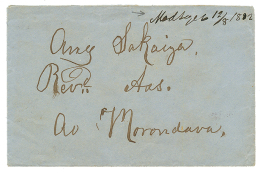 6 12/8 1882
Any Sakaiza.
Revd. Aas.
ao Morondava.